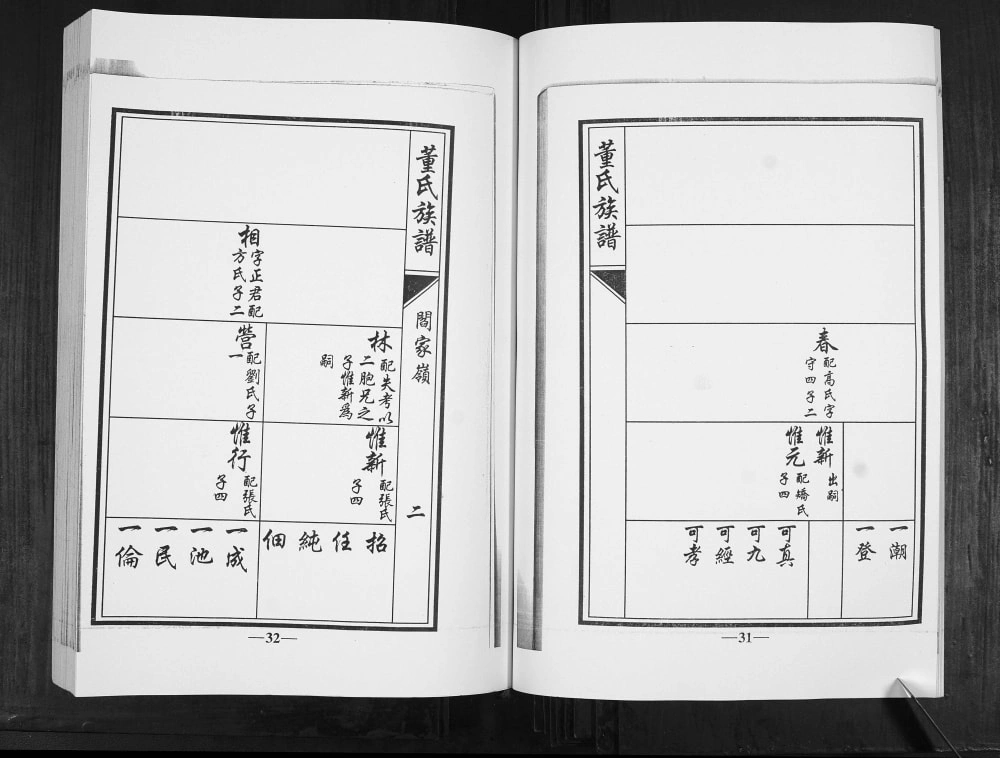 董氏族譜
春
配高氏字
守四子二
惟新
出嗣
惟元
配矯氏
子四
一潮
一登
可真
可九
可經
可孝
—31—
董氏族譜
閻家嶺
二
相
字正君配
方氏子二
林
配失考以
二胞兄之
子惟新為
嗣
營
配劉氏子
一
惟新
配張氏
子四
惟行
配張氏
子四
招
任
純
佃
一成
一池
一民
一倫
—32—